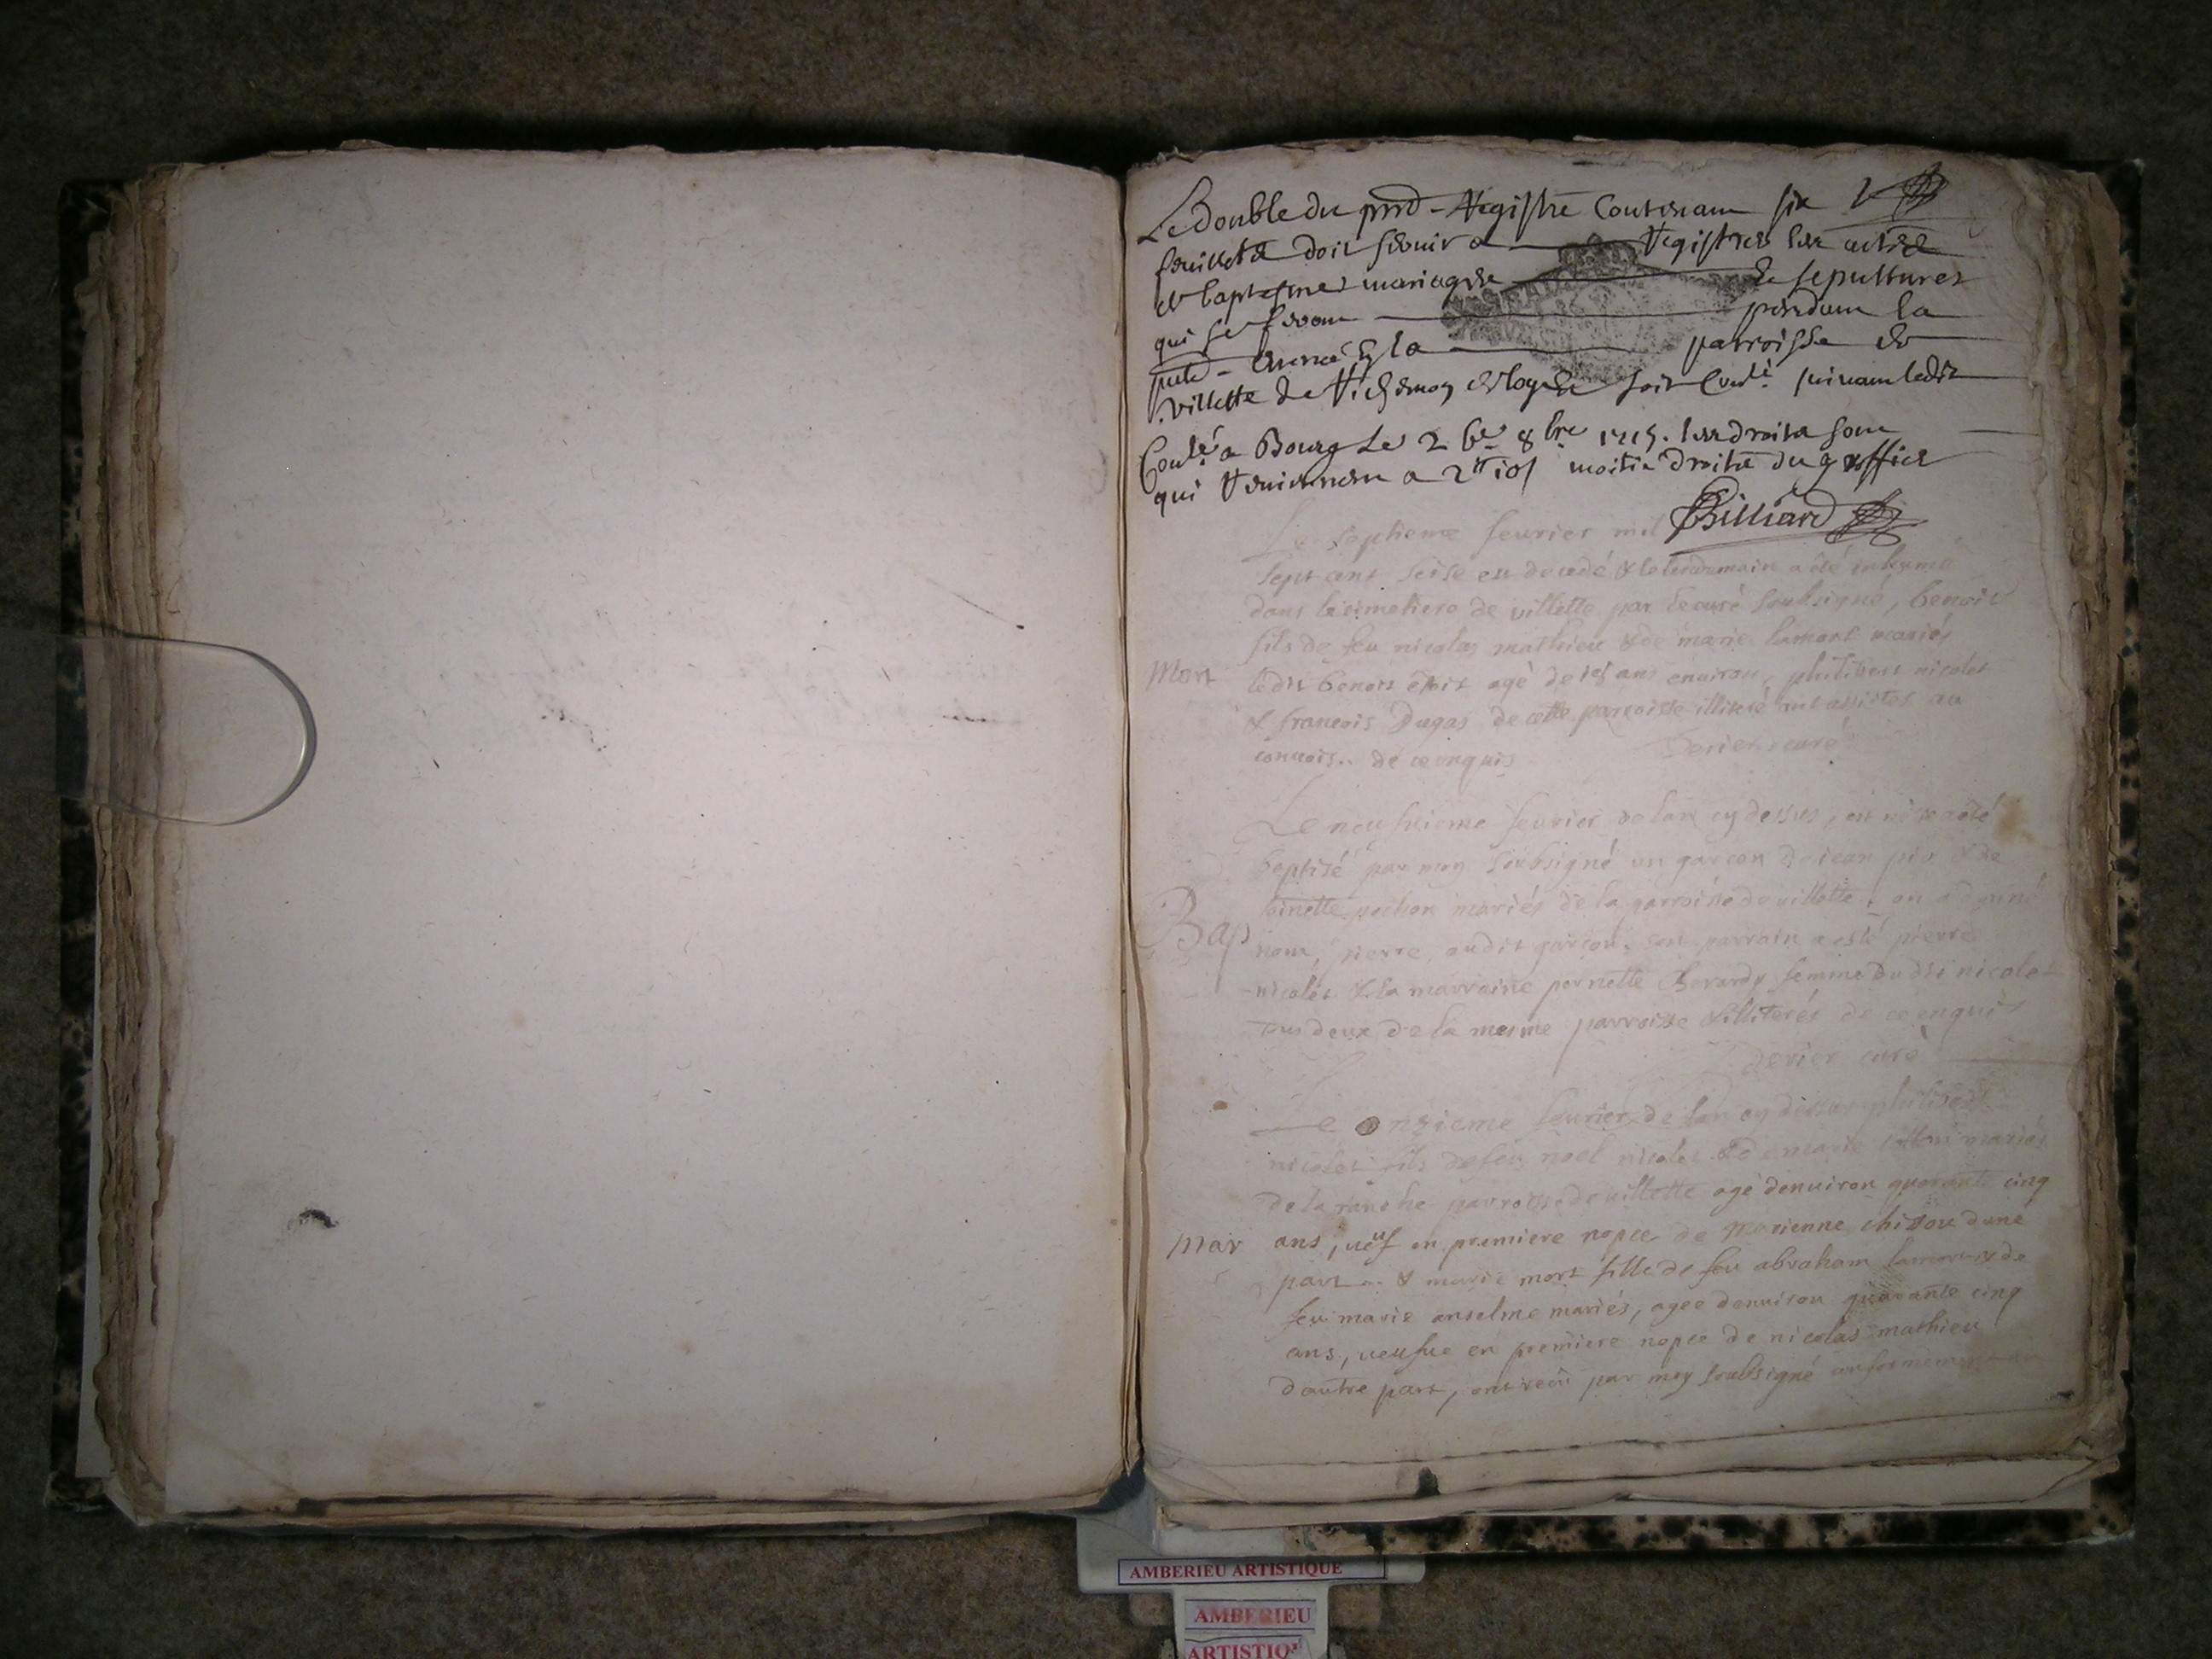 Le double du pnt Registre Contenant six
feuillets doit servir a Registrer les actes
de baptesmes mariages & sepultures
qui se feront pendant la
pnte année En la parroisse de
villette de Richemon & loyes soit suivant ledit
a Bourg Le 8bre 1715. les droits sont
qui Reviennent a 2tt 10s moitié droits du greffier
Billiard
Le septieme feurier mil
sept cent seise est decedé & le lendemain a été inhumé
dans le cimetiere de villette par le curé soubsigné, benoit
fils de feu nicolas mathieu & de marie lamort mariés
Mort
ledit benoit étoit agé de ans enuiron, philibert nicolet
& francois Dugas de cette parroisse illiteré ont assistés au
conuois.. de ce enquis
Derier curé
Le neufuieme feurier de lan cy dessus, est né & a été
baptisé par moy soubsigné un garcon de jean & de
Bap
pochon mariés de la parroisse de villette, on a donné
nom, pierre, audit garcon. son parrain a esté pierre
nicolet & la marraine pernette femme dudit nicolet
tous deux de la mesme parroisse & illiterés de ce enquis
Derier curé
Le onzieme feurier de lan cy dessus philibert
nicolet fils de feu noel nicolet & de marie mariés
de la ranche parroisse de villette agé denuiron quarante cinq
Mar
ans, ueuf en premiere nopce de d'une
part & marie mort fille de feu abraham & de
feu marie anselme mariés, agee denuiron quarante cinq
ans, ueufue en premiere nopce de nicolas mathieu
dautre part, ont recû par moy soubsigné
AMBERIEU ARTISTIQUE
AMBERIEU
ARTISTIQ